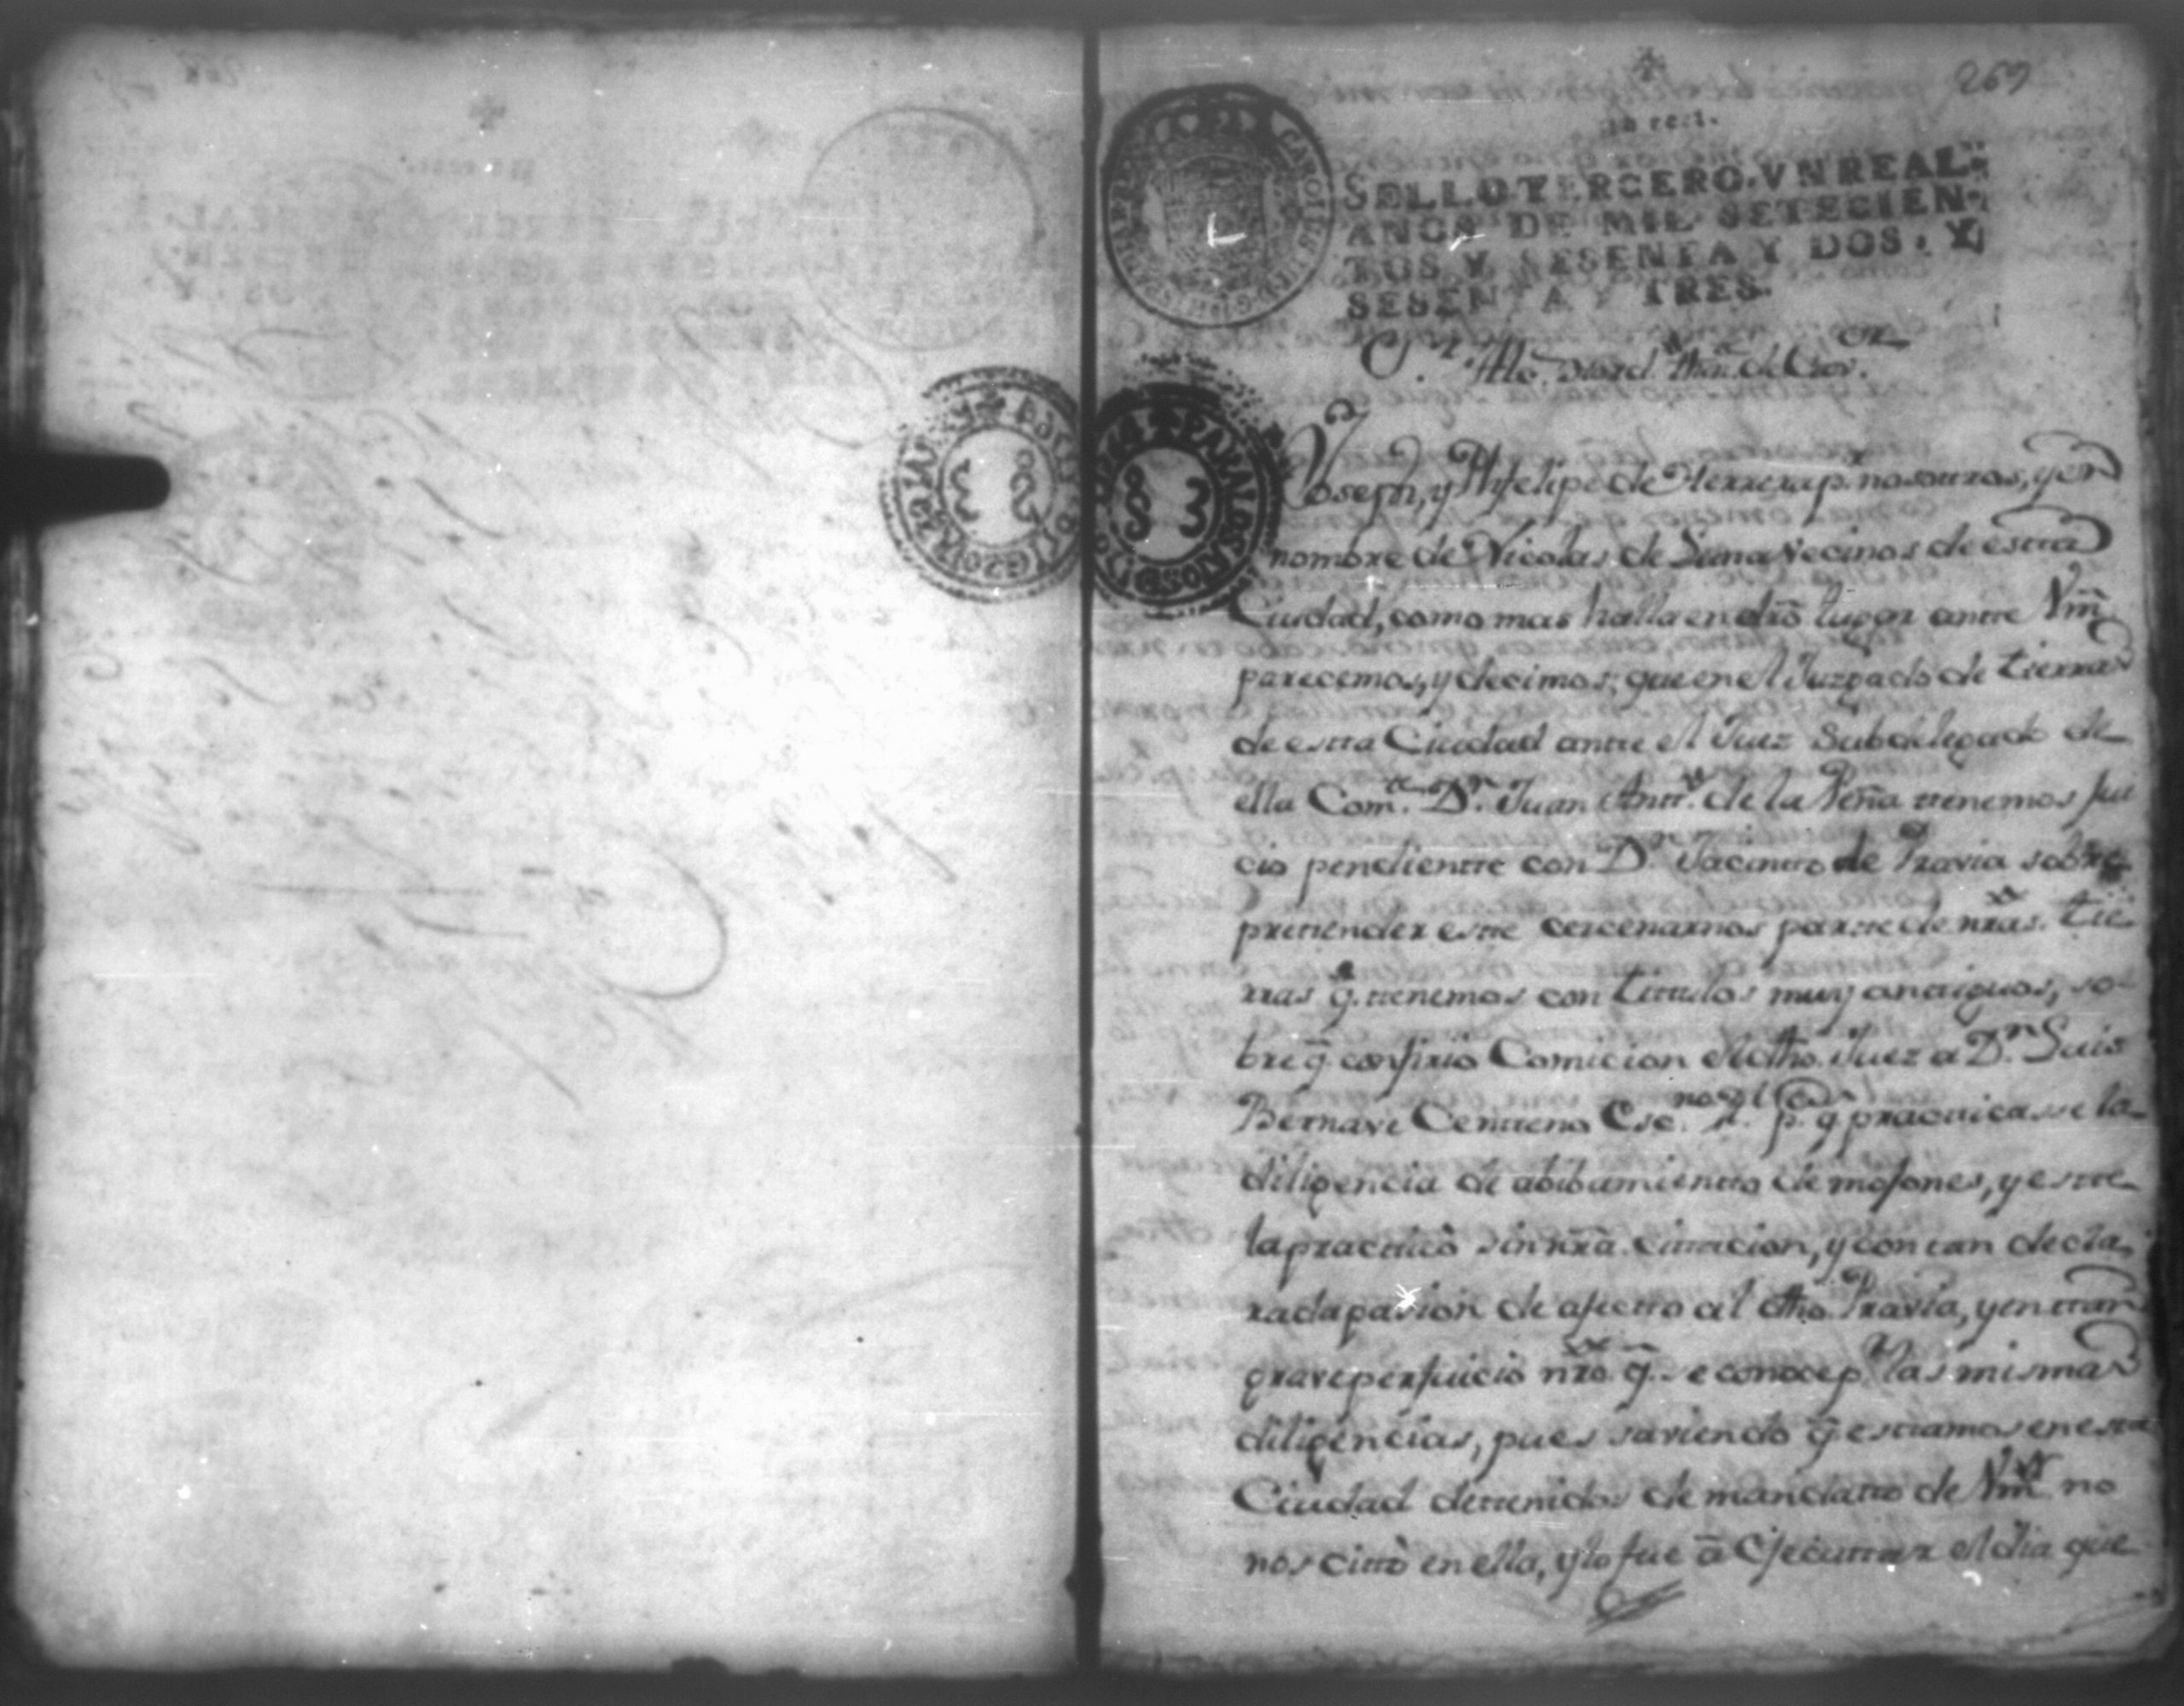 269
Un real.
SELLO TERCERO, VN REAL,
AÑOS DE MIL SETECIEN-
TOS Y SESENTA Y DOS, Y
SESENTA Y TRES.
PARA LOS AÑOS D
83
Joseph, y Phelipe de Herrera p.r nosotros, y en
nombre de Nicolas de Luna vecinos de esta
Ciudad, como mas halla en dro lugar ante Vm̃
parecemos, y decimos; que en el Juzgado de tierras
de esta Ciudad ante el Juez Subdelegado de
ella Com.º D.n Juan Antt.º de la Peña tenemos jui
cio pendiente con D.n Jacinto de Pravia sobre
pretender este cercenarnos parte de nr̃as. tie
rras q̃. tenemos con titulos muy antiguos, so-
bre q̃ confirio Comicion el dho. Juez a D.n Luis
Bernave Centeno Esc.no R.l p.a q̃ practicasse la
diligencia de abibamiento de mojones, y este
la practicò sin nr̃a. citacion, y con tan decla
rada pasion de afecto al dho. Pravia, y en tan
grave perjuicio nr̃o. q̃. se conoce p.r las mismas
diligencias, pues saviendo q̃ estamos en esta
Ciudad detenidos de mandato de Vm̃. no
nos citò en ella, y lo fue â Ejecutar el dia que